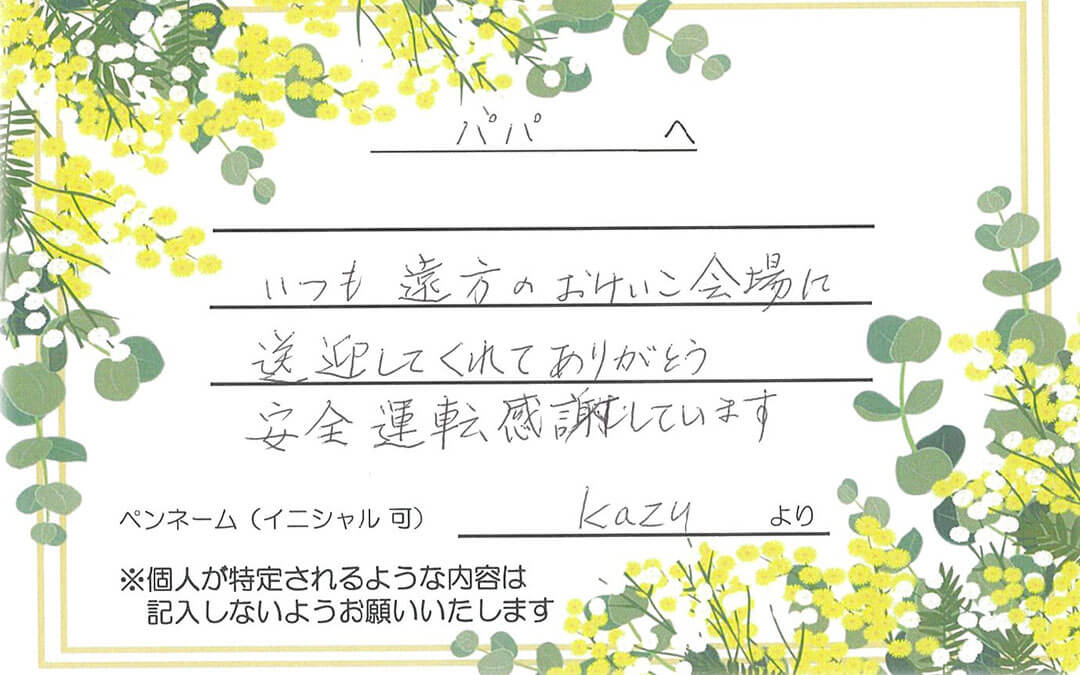 パパ へ
いつも遠方のおけいこ会場に
送迎してくれてありがとう
安全運転感謝しています
ペンネーム（イニシャル 可） kazu より
※個人が特定されるような内容は
記入しないようお願いいたします